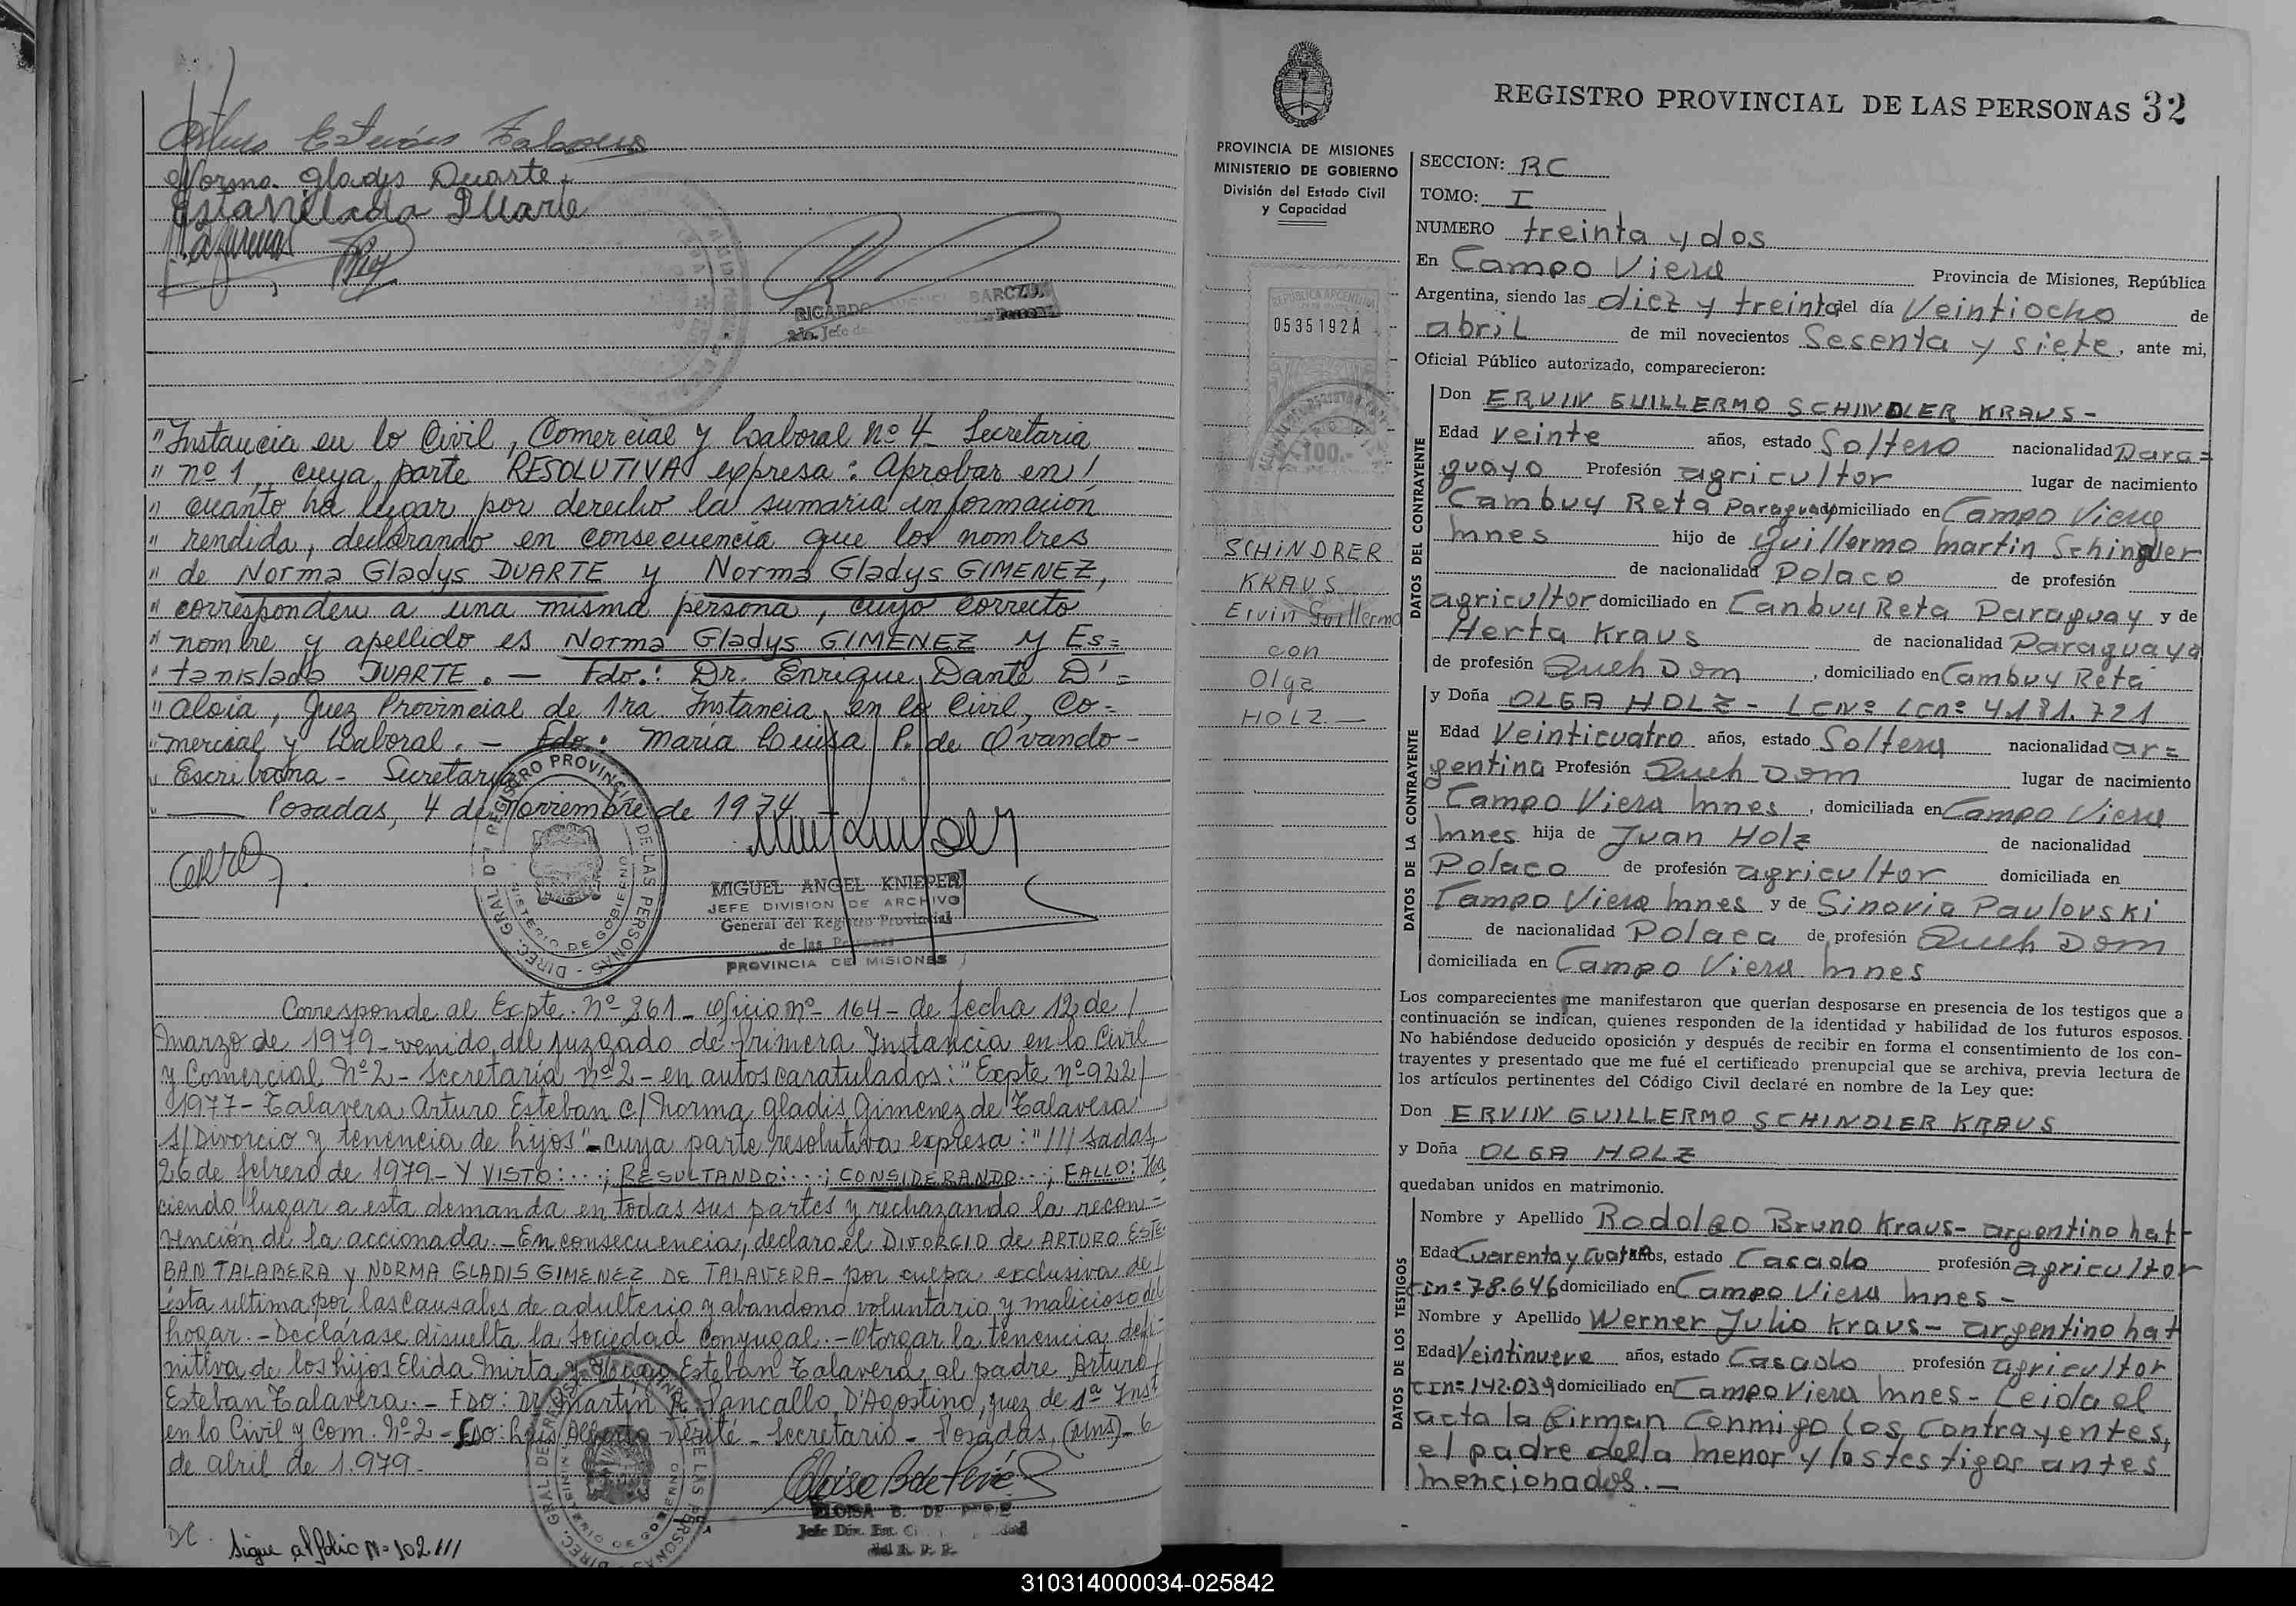 Arturo Esteban Talavera
Norma Gladys Duarte
Estanilada Duarte
RICARDO MIGUEL BARCZU
"Instancia en lo Civil, Comercial y Laboral Nº 4 Secretaria
" nº 1, cuya parte RESOLUTIVA expresa: Aprobar en/
" cuanto ha lugar por derecho la sumaria información
" rendida, declarando en consecuencia que los nombres
" de Norma Gladys DUARTE y Norma Gladys GIMENEZ,
" corresponden a una misma persona, cuyo correcto
" nombre y apellido es Norma Gladys GIMENEZ y Es=
" tanislada DUARTE. — Fdo.: Dr. Enrique Dante D'=
" aloia, Juez Provincial de 1ra Instancia en lo Civil, Co=
" mercial y Laboral. — Fdo: Maria Luisa P. de Ovando-
" Escribana - Secretaria
" —— Posadas, 4 de noviembre de 1974
DIREC. GRAL. DEL REGISTRO PROVINCIAL DE LAS PERSONAS
MINISTERIO DE GOBIERNO
MIGUEL ANGEL KNIEPER
JEFE DIVISION DE ARCHIVO
General del Registro Provincial
de las Personas
PROVINCIA DE MISIONES
Corresponde al Expte. Nº 261 - Oficio nº 164 - de fecha 12 de/
Marzo de 1979 - venido del juzgado de Primera Instancia en lo Civil
y Comercial Nº 2 - Secretaria nº 2 - en autos caratulados: "Expte nº 922/
1977 - Talavera Arturo Esteban c/ Norma Gladis Gimenez de Talavera
S/Divorcio y tenencia de hijos" - cuya parte resolutiva expresa: "///sadas,
26 de febrero de 1979 - Y VISTO:...; RESULTANDO:...; CONSIDERANDO...; FALLO: Ha
ciendo lugar a esta demanda en todas sus partes y rechazando la recon=
vención de la accionada. - En consecuencia, declaro el DIVORCIO de ARTURO ESTE
BAN TALABERA y NORMA GLADIS GIMENEZ DE TALAVERA - por culpa exclusiva de/
ésta ultima por las causales de adulterio y abandono voluntario y malicioso del
hogar. - Declárase disuelta la sociedad conyugal. - Otorgar la tenencia defi-
nitiva de los hijos Elida Mirta y Hugo Esteban Talavera al padre Arturo/
Esteban Talavera. - FDO: Dr Martín R. Pancallo D'Agostino, juez de 1ª Inst
en lo Civil y Com. Nº 2 - FDO: Luis Alberto - Secretario - Posadas, (Mns) - 6
de abril de 1.979 -
ELOISA B. DE
Jefe Div. Est. Ci
Sigue al folio Nº 102///
REGISTRO PROVINCIAL DE LAS PERSONAS 32
PROVINCIA DE MISIONES
MINISTERIO DE GOBIERNO
División del Estado Civil
y Capacidad
REPUBLICA ARGENTINA
0535192A
100.-
SCHINDRER
KRAUS
Ervin Guillermo
con
Olga
HOLZ. —
SECCION: RC
TOMO: I
NUMERO treinta y dos
En Campo Viera Provincia de Misiones, República
Argentina, siendo las diez y treinta del día Veintiocho de
abril de mil novecientos Sesenta y siete, ante mi,
Oficial Público autorizado, comparecieron:
DATOS DEL CONTRAYENTE
Don ERVIN GUILLERMO SCHINDLER KRAUS -
Edad veinte años, estado Soltero nacionalidad Para=
guayo Profesión agricultor lugar de nacimiento
Cambuy Reta Paraguay domiciliado en Campo Viera
Mnes hijo de Guillermo Martin Schindler
de nacionalidad Polaco de profesión
agricultor domiciliado en Canbuy Reta Paraguay y de
Herta Kraus de nacionalidad Paraguaya
de profesión Queh Dom, domiciliado en Cambuy Reta
DATOS DE LA CONTRAYENTE
y Doña OLGA HOLZ - LCNº LCnº 4.181.721
Edad Veinticuatro años, estado Soltera nacionalidad ar=
gentina Profesión Queh Dom lugar de nacimiento
Campo Viera Mnes, domiciliada en Campo Viera
Mnes hija de Juan Holz de nacionalidad
Polaco de profesión agricultor domiciliada en
Campo Viera Mnes y de Sinovia Paulovski
de nacionalidad Polaca de profesión Queh Dom
domiciliada en Campo Viera Mnes
Los comparecientes me manifestaron que querían desposarse en presencia de los testigos que a
continuación se indican, quienes responden de la identidad y habilidad de los futuros esposos.
No habiéndose deducido oposición y después de recibir en forma el consentimiento de los con-
trayentes y presentado que me fué el certificado prenupcial que se archiva, previa lectura de
los artículos pertinentes del Código Civil declaré en nombre de la Ley que:
Don ERVIN GUILLERMO SCHINDLER KRAUS
y Doña OLGA HOLZ
quedaban unidos en matrimonio.
DATOS DE LOS TESTIGOS
Nombre y Apellido Rodolfo Bruno Kraus - argentino nat
Edad Cuarenta y cuatro años, estado Casado profesión agricultor
CInº 78.646 domiciliado en Campo Viera Mnes -
Nombre y Apellido Werner Julio Kraus - argentino nat
Edad Veintinueve años, estado Casado profesión agricultor
CInº 142.039 domiciliado en Campo Viera Mnes - Leida el
acta la firman conmigo los contrayentes,
el padre della menor y los testigos antes
mencionados. —
310314000034-025842